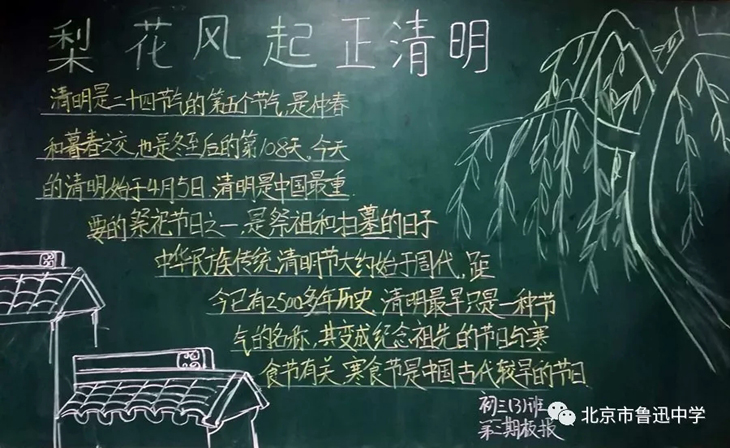 梨花风起正清明
清明是二十四节气的第五个节气,是仲春
和暮春之交,也是冬至后的第108天。今天
的清明始于4月5日、清明是中国最重
要的祭祀节日之一,是祭祖和扫墓的日子
中华民族传统清明节大约始于周代,距
今已有2500多年历史,清明最早只是一种节
气的名称,其变成纪念祖先的节日与寒
食节有关,寒食节是中国古代较早的节日
初三(3)班
第二期板报
北京市鲁迅中学